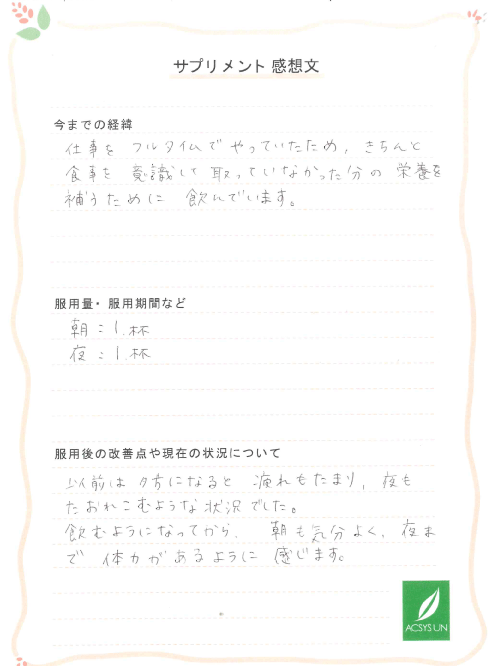 サプリメント 感想文
今までの経緯
仕事を フルタイムで やっていたため, きちんと
食事を 意識して 取っていなかった分の 栄養を
補うために 飲んでいます。
服用量・服用期間など
朝：1.杯
夜：1.杯
服用後の改善点や現在の状況について
以前は 夕方になると 疲れもたまり, 夜も
たおれこむような 状況でした。
飲むようになってから. 朝も気分よく, 夜ま
で 体力があるように 感じます。
ACSYS UN